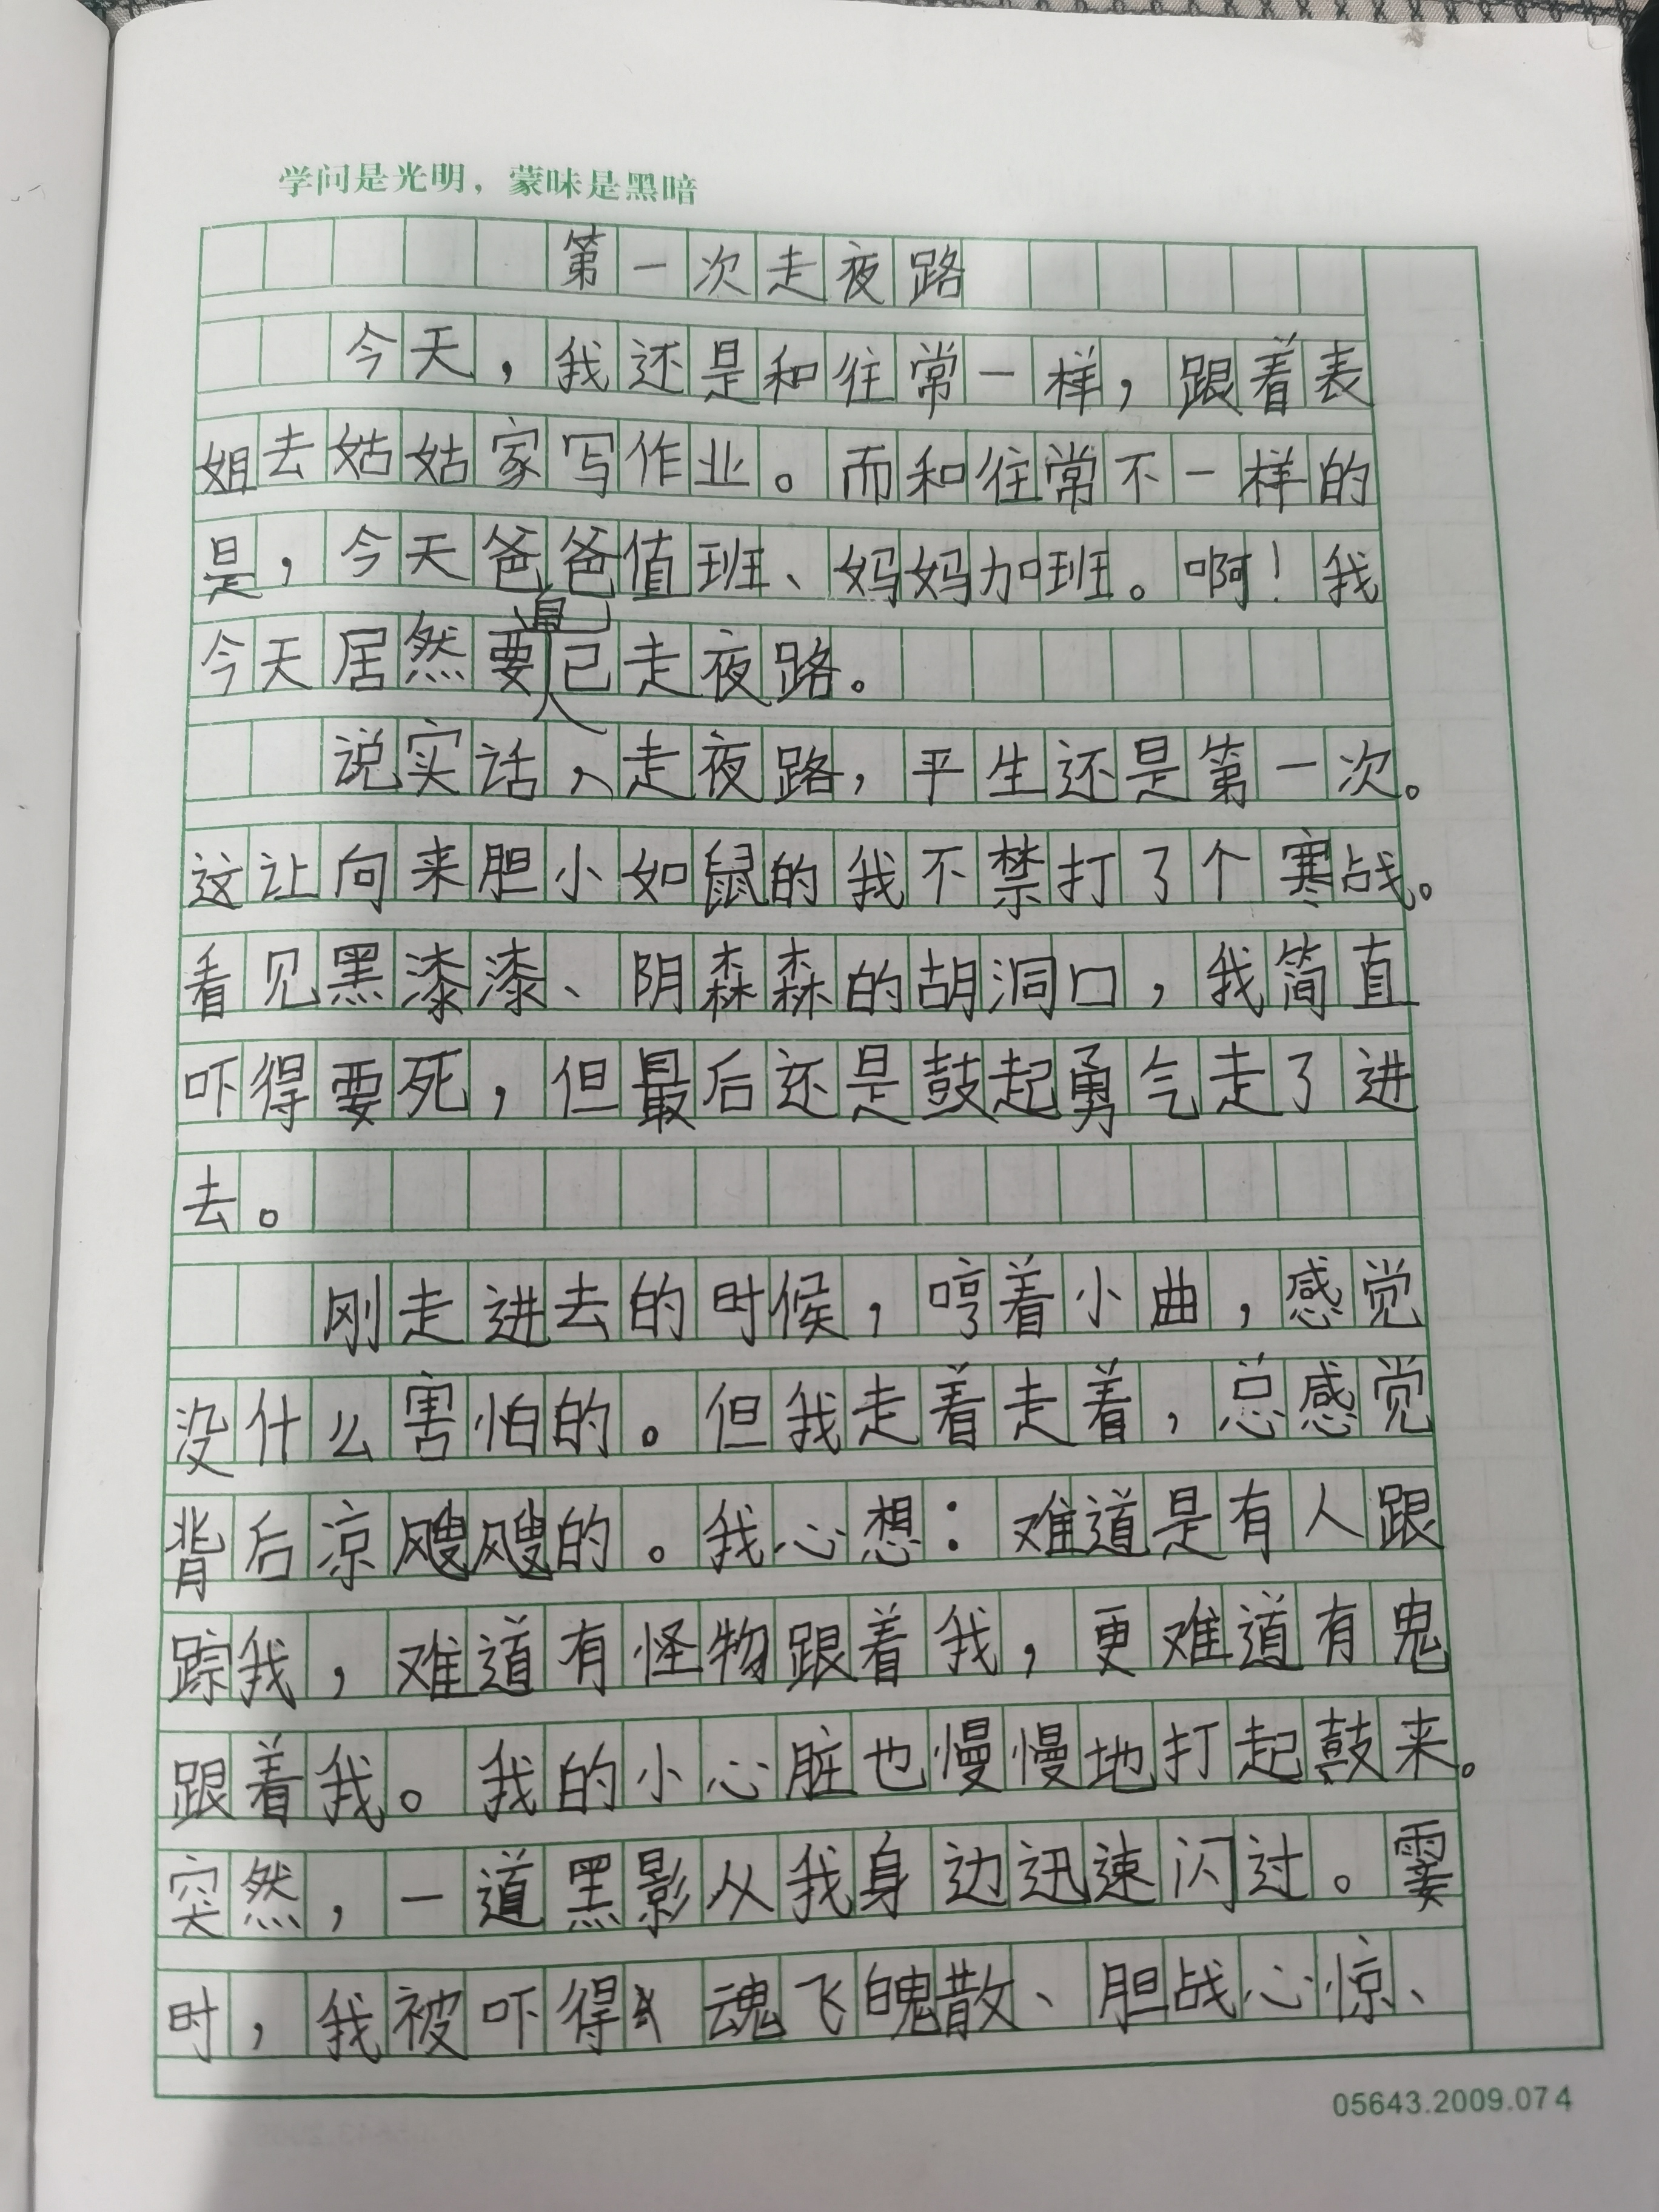 学问是光明，蒙昧是黑暗
第一次走夜路
今天，我还是和往常一样，跟着表
姐去姑姑家写作业。而和往常不一样的
是，今天爸爸值班、妈妈加班。啊！我
今天居然要自己走夜路。
说实话，走夜路，平生还是第一次。
这让向来胆小如鼠的我不禁打了个寒战。
看见黑漆漆、阴森森的胡洞口，我简直
吓得要死，但最后还是鼓起勇气走了进
去。
刚走进去的时候，哼着小曲，感觉
没什么害怕的。但我走着走着，总感觉
背后凉飕飕的。我心想：难道是有人跟
踪我，难道有怪物跟着我，更难道有鬼
跟着我。我的小心脏也慢慢地打起鼓来。
突然，一道黑影从我身边迅速闪过。霎
时，我被吓得魂飞魄散、胆战心惊、
05643.2009.074